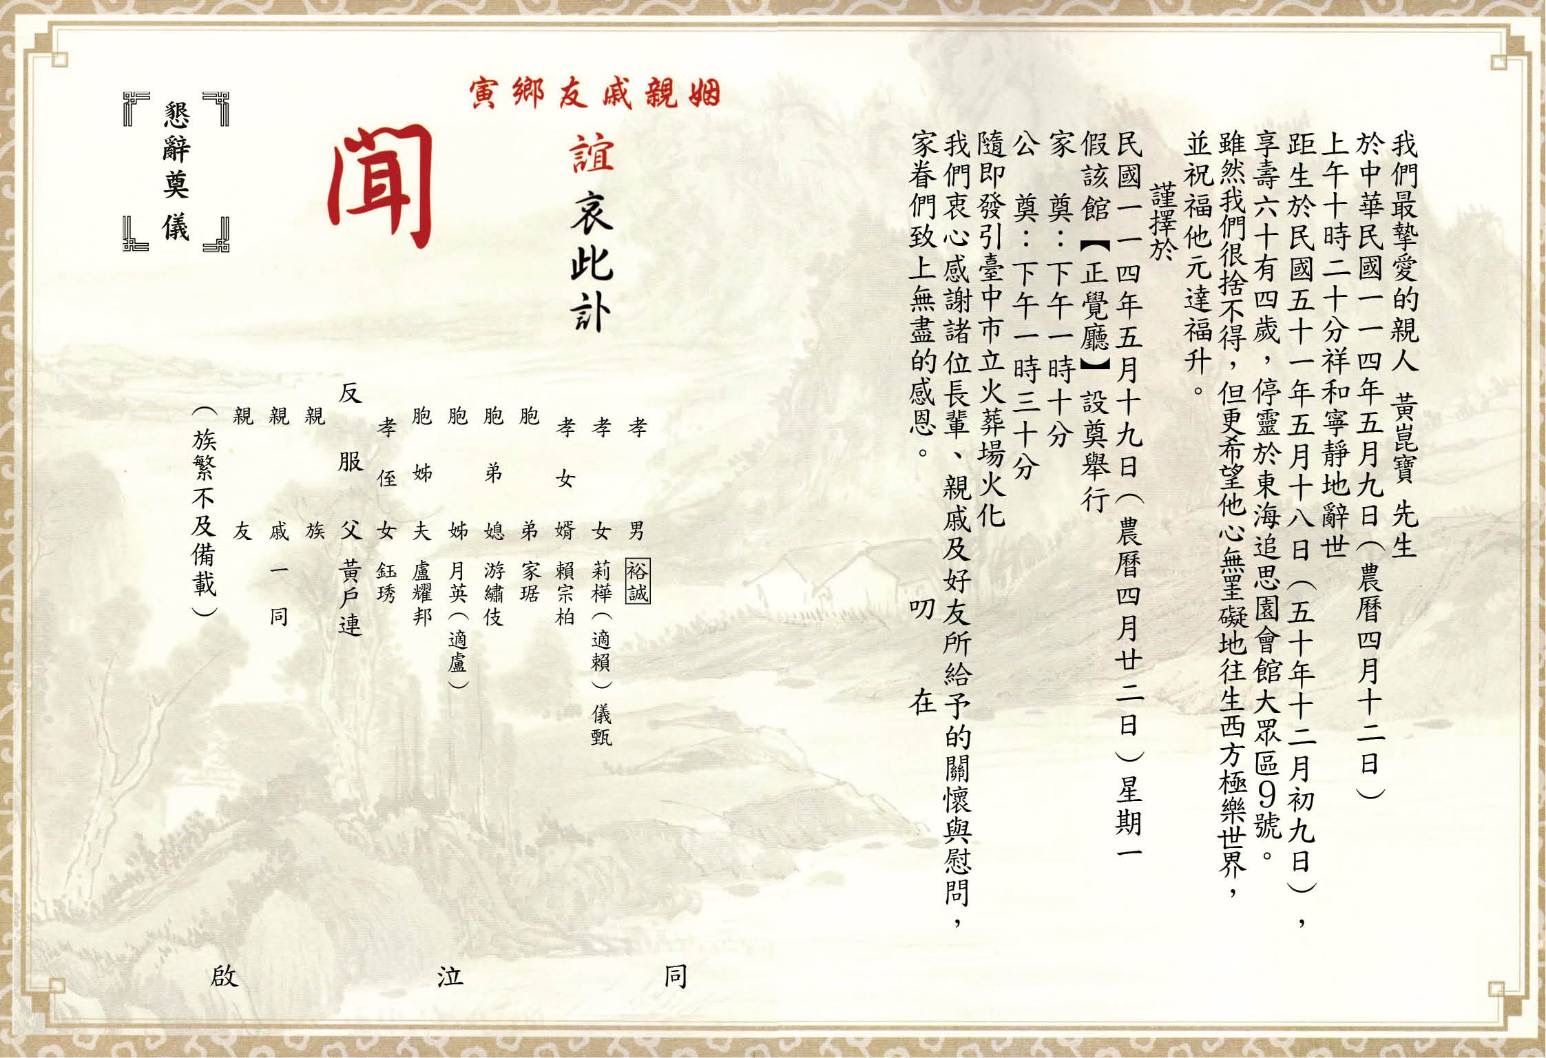 我們最摯愛的親人 黃崑寶 先生
於中華民國一一四年五月九日（農曆四月十二日）
上午十時二十分祥和寧靜地辭世
距生於民國五十一年五月十八日（五十年十二月初九日），
享壽六十有四歲，停靈於東海追思園會館大眾區9號。
雖然我們很捨不得，但更希望他心無罣礙地往生西方極樂世界，
並祝福他元達福升。
謹擇於
民國一一四年五月十九日（農曆四月廿二日）星期一
假該館【正覺廳】設奠舉行
家 奠：下午一時十分
公 奠：下午一時三十分
隨即發引臺中市立火葬場火化
我們衷心感謝諸位長輩、親戚及好友所給予的關懷與慰問，
家眷們致上無盡的感恩。 叨 在
姻親戚友鄉寅
誼哀此訃
聞
孝男 裕誠
孝女 莉樺（適賴）儀甄
孝女婿 賴宗柏
胞弟 家琚
胞弟媳 游繡伎
胞姊 月英（適盧）
胞姊夫 盧耀邦
孝侄女 鈺琇
反服父 黃戶連
親族
親戚一同
親友
（族繁不及備載）
同 泣 啟
懇辭奠儀